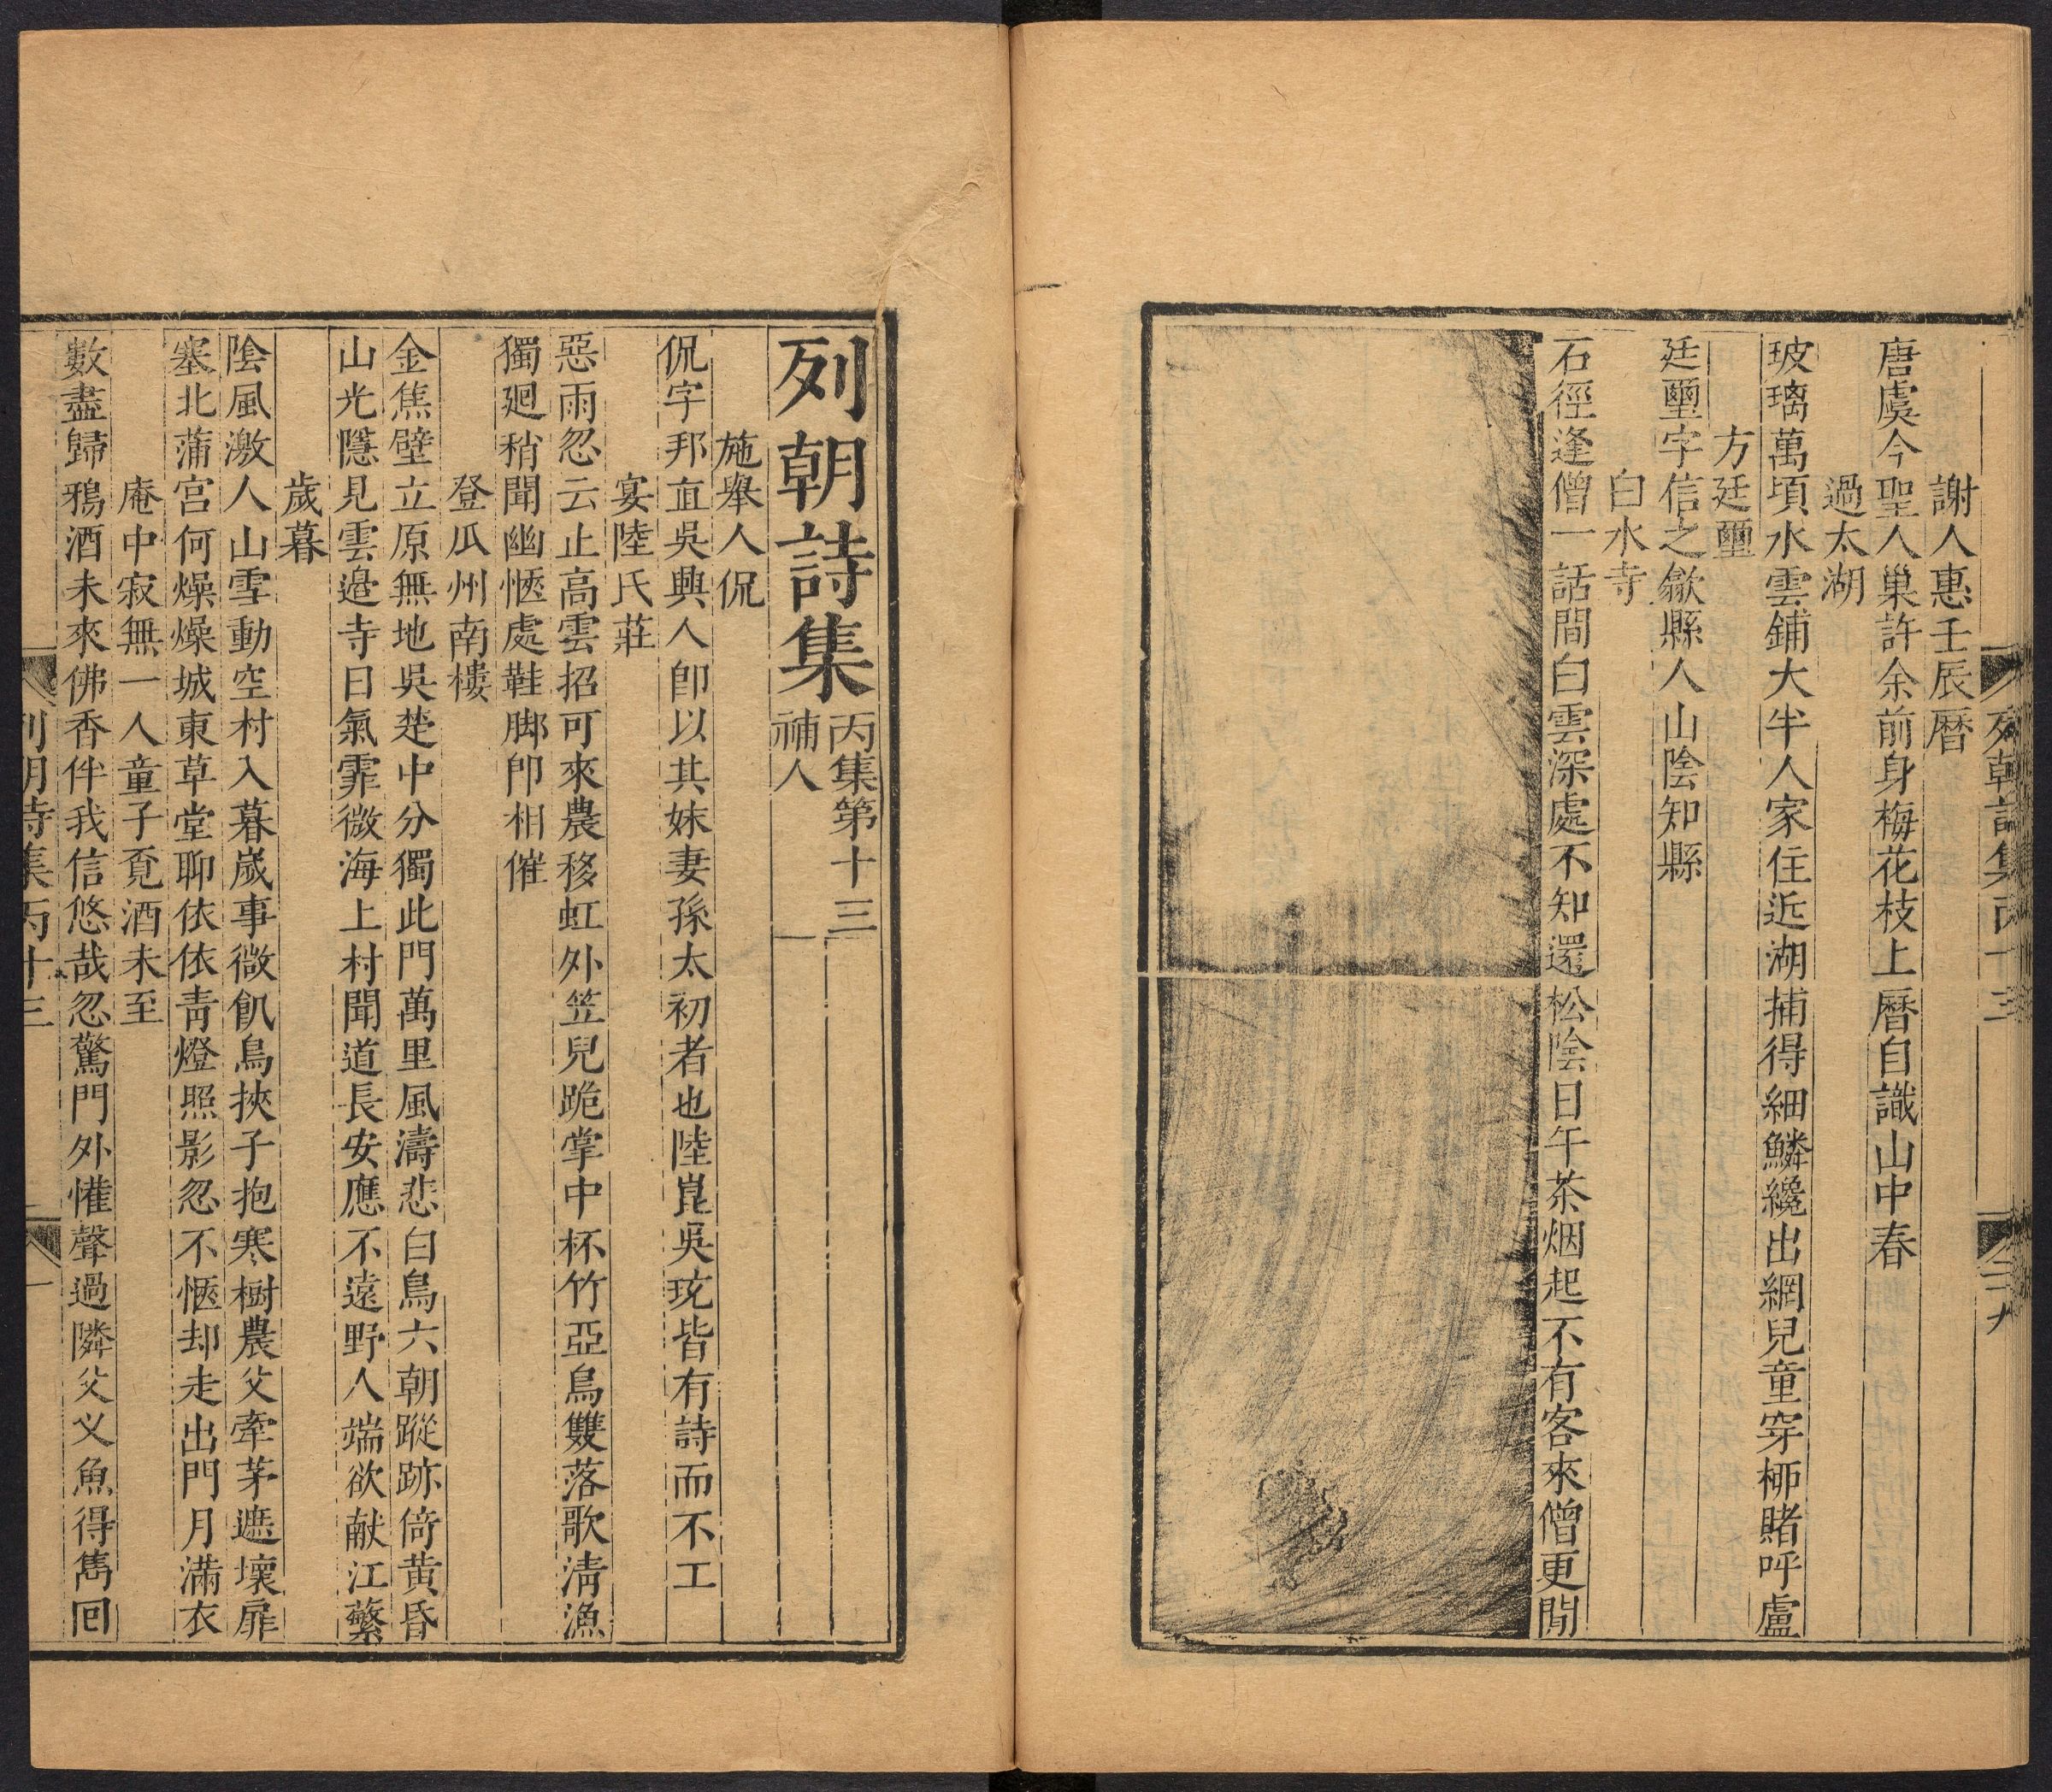 謝人惠壬辰曆
唐虞今聖人巢許余前身梅花枝上曆自識山中春
過太湖
玻璃萬頃水雲鋪大半人家住近湖捕得細鱗纔出網兒童穿桺賭呼盧
方廷璽
廷璽字信之歙縣人山陰知縣
白水寺
石徑逢僧一話間白雲深處不知還松陰日午茶烟起不有客來僧更閒
列朝詩集丙十三
列朝詩集
丙集第十三
補人
施舉人侃
侃字邦直吳興人卽以其妹妻孫太初者也陸崑吳玧皆有詩而不工
宴陸氏莊
惡雨忽云止高雲招可來農移虹外笠兒跪掌中杯竹亞鳥雙落歌淸漁
獨廻稍聞幽愜處鞋脚卽相催
登瓜州南樓
金焦壁立原無地吳楚中分獨此門萬里風濤悲白鳥六朝蹤跡倚黃昏
山光隱見雲邉寺日氣霏微海上村聞道長安應不遠野人端欲献江蘩
歲暮
陰風激人山雪動空村入暮歲事微飢鳥挾子抱寒樹農父牽茅遮壞扉
塞北蒲宮何燥燥城東草堂聊依依靑燈照影忽不愜却走出門月滿衣
庵中寂無一人童子覓酒未至
數盡歸鴉酒未來佛香伴我信悠哉忽驚門外懽聲過隣父义魚得雋囘
列朝詩集丙十三
一